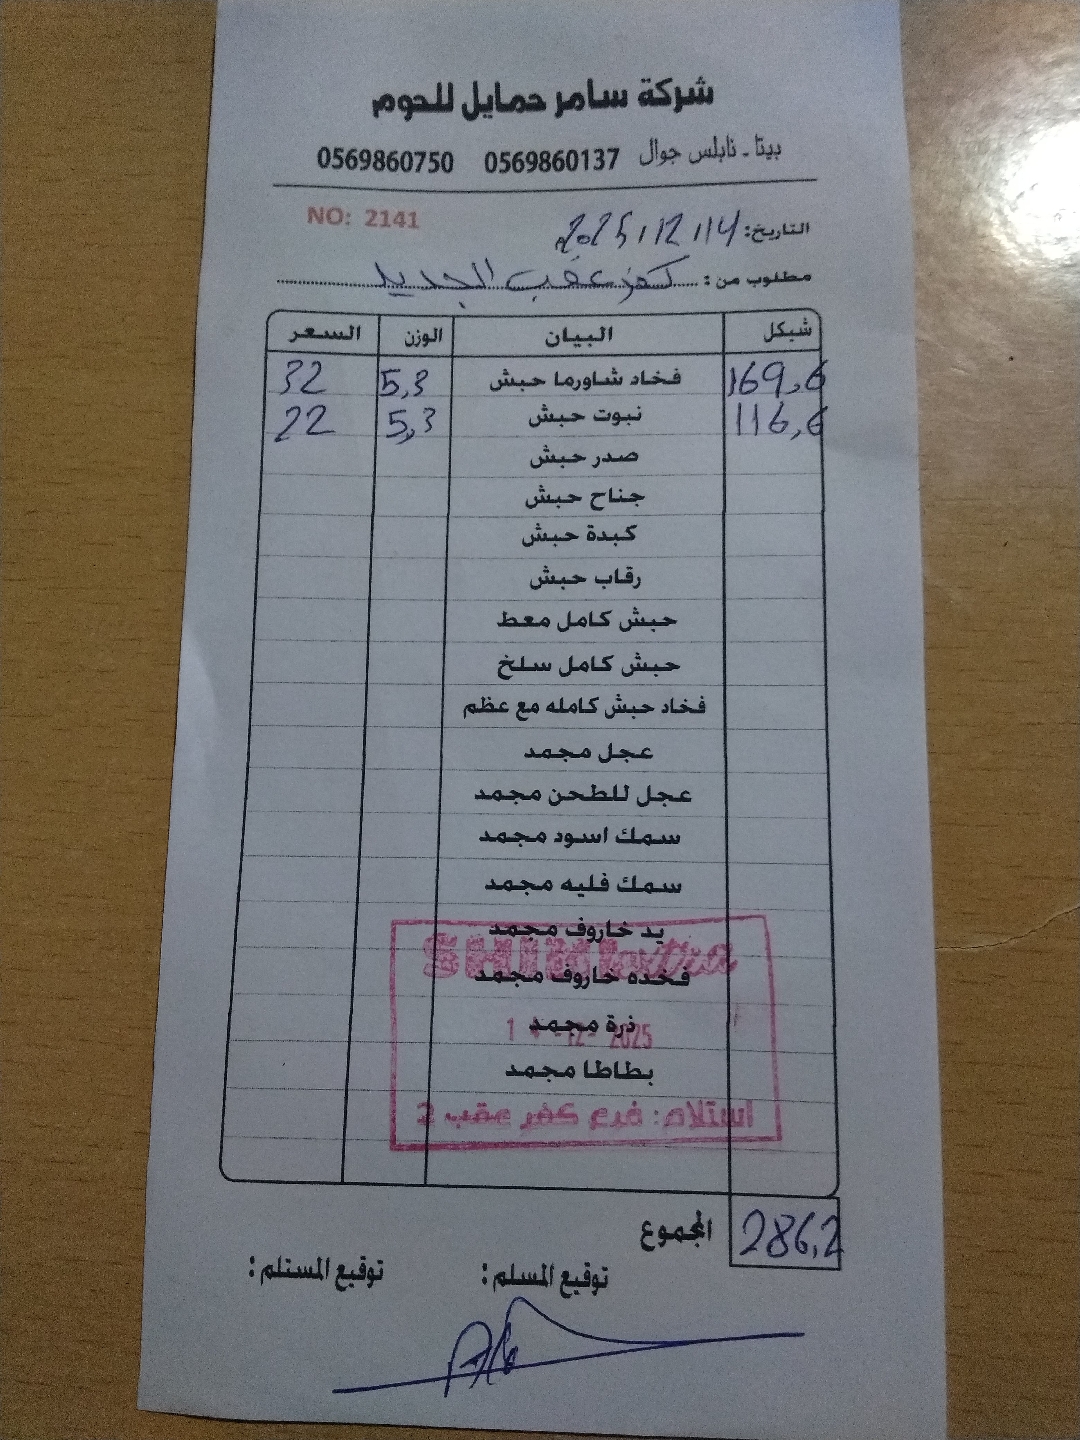 شركة سامر حمايل للحوم
بيتا - نابلس جوال 0569860137 0569860750
NO: 2141
التاريخ: 2025/12/14
مطلوب من: كفر عقب الجديد
شيكل البيان الوزن السعر
169,6 فخاد شاورما حبش 5,3 32
116,6 نبوت حبش 5,3 22
صدر حبش
جناح حبش
كبدة حبش
رقاب حبش
حبش كامل معط
حبش كامل سلخ
فخاد حبش كامله مع عظم
عجل مجمد
عجل للطحن مجمد
سمك اسود مجمد
سمك فليه مجمد
يد خاروف مجمد
فخده خاروف مجمد
ذرة مجمد
14 -12- 2025
بطاطا مجمد
استلام: فرع كفر عقب 2
المجموع 286,2
توقيع المسلم: توقيع المستلم: